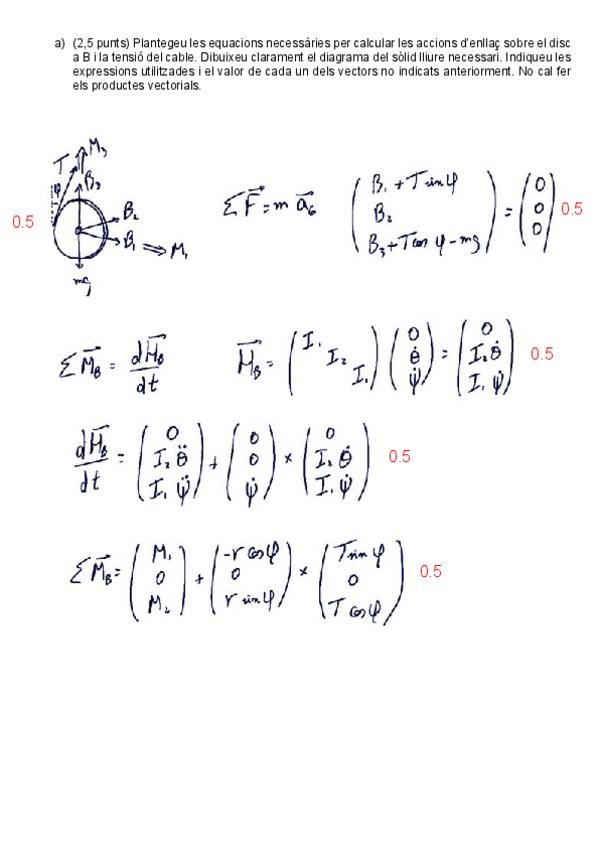 a) (2,5 punts) Plantegeu les equacions necessàries per calcular les accions d'enllaç sobre el disc
a B i la tensió del cable. Dibuixeu clarament el diagrama del sòlid lliure necessari. Indiqueu les
expressions utilitzades i el valor de cada un dels vectors no indicats anteriorment. No cal fer
els productes vectorials.
T M₃
φ B₃
B₂
B₁ M₁
mg
0.5
ΣF⃗ = m a⃗_G
( B₁ + T sin φ ; B₂ ; B₃ + T cos φ - mg ) = ( 0 ; 0 ; 0 ) 0.5
ΣM⃗_B = dH⃗_B/dt
H⃗_B = ( I₁ I₂ I₁ ) ( 0 ; θ̇ ; ψ̇ ) = ( 0 ; I₂ θ̇ ; I₁ ψ̇ ) 0.5
dH⃗_B/dt = ( 0 ; I₂ θ̈ ; I₁ ψ̈ ) + ( 0 ; 0 ; ψ̇ ) × ( 0 ; I₂ θ̇ ; I₁ ψ̇ ) 0.5
ΣM⃗_B = ( M₁ ; 0 ; M₂ ) + ( -r cos φ ; 0 ; r sin φ ) × ( T sin φ ; 0 ; T cos φ ) 0.5